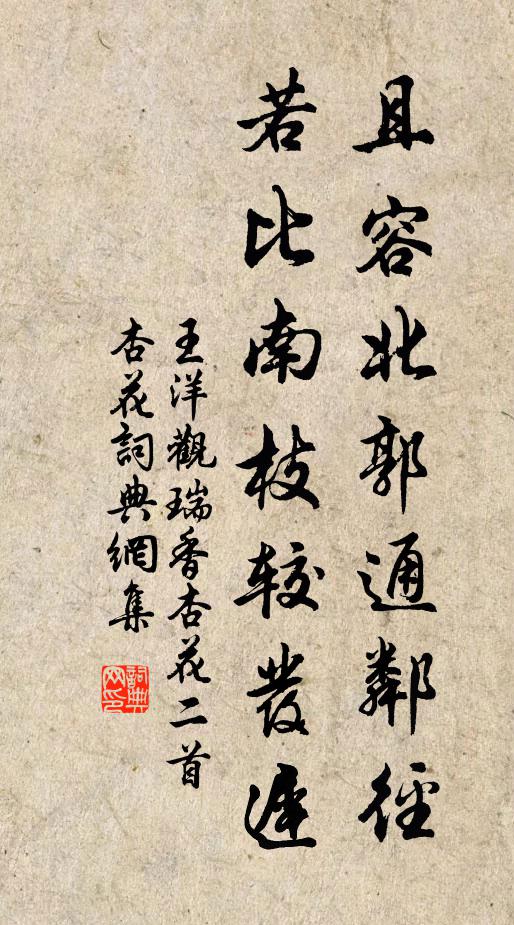 且容北郭通鄰徑
若比南枝較發遲
王洋觀瑞香杏花二首
杏花詞典網集
詞典网印